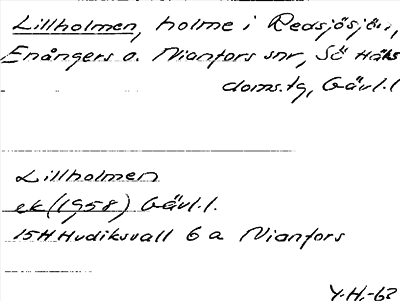 Lillholmen, holme i Redsjösjön,
Enångers o. Nianfors snr, Sö Häls
doms.tg, Gävl.l
Lillholmen
ek (1958) Gävl.l.
15H Hudiksvall 6 a Nianfors
Y.H.-62